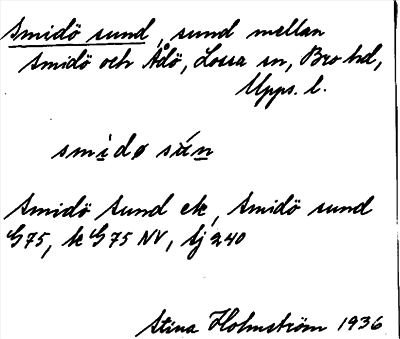 Smidö sund, sund mellan
Smidö och Ådö, Lossa sn, Bro hd,
Upps. l.
smìdø sún
Smidö Sund ek, Smidö sund
G75, k G75 NV, Sj 240
Stina Holmström 1936